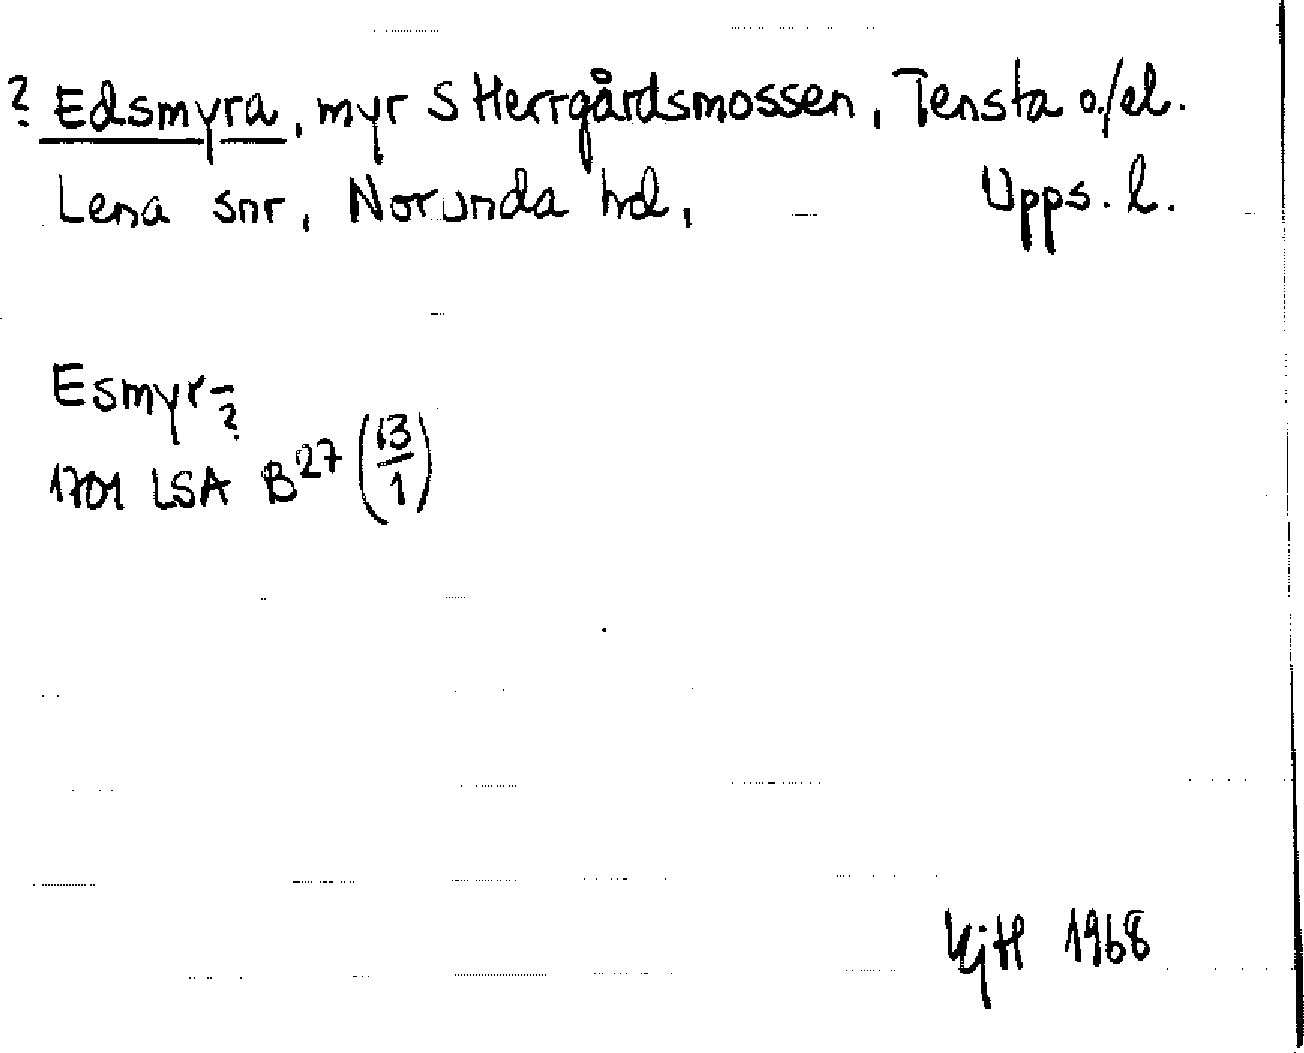 ? Edsmyra, myr S Herrgårdsmossen, Tensta o./el.
Lena snr, Norunda hd, Upps. l.
Esmyr-?
1701 LSA B27 (13/1)
KjH 1968